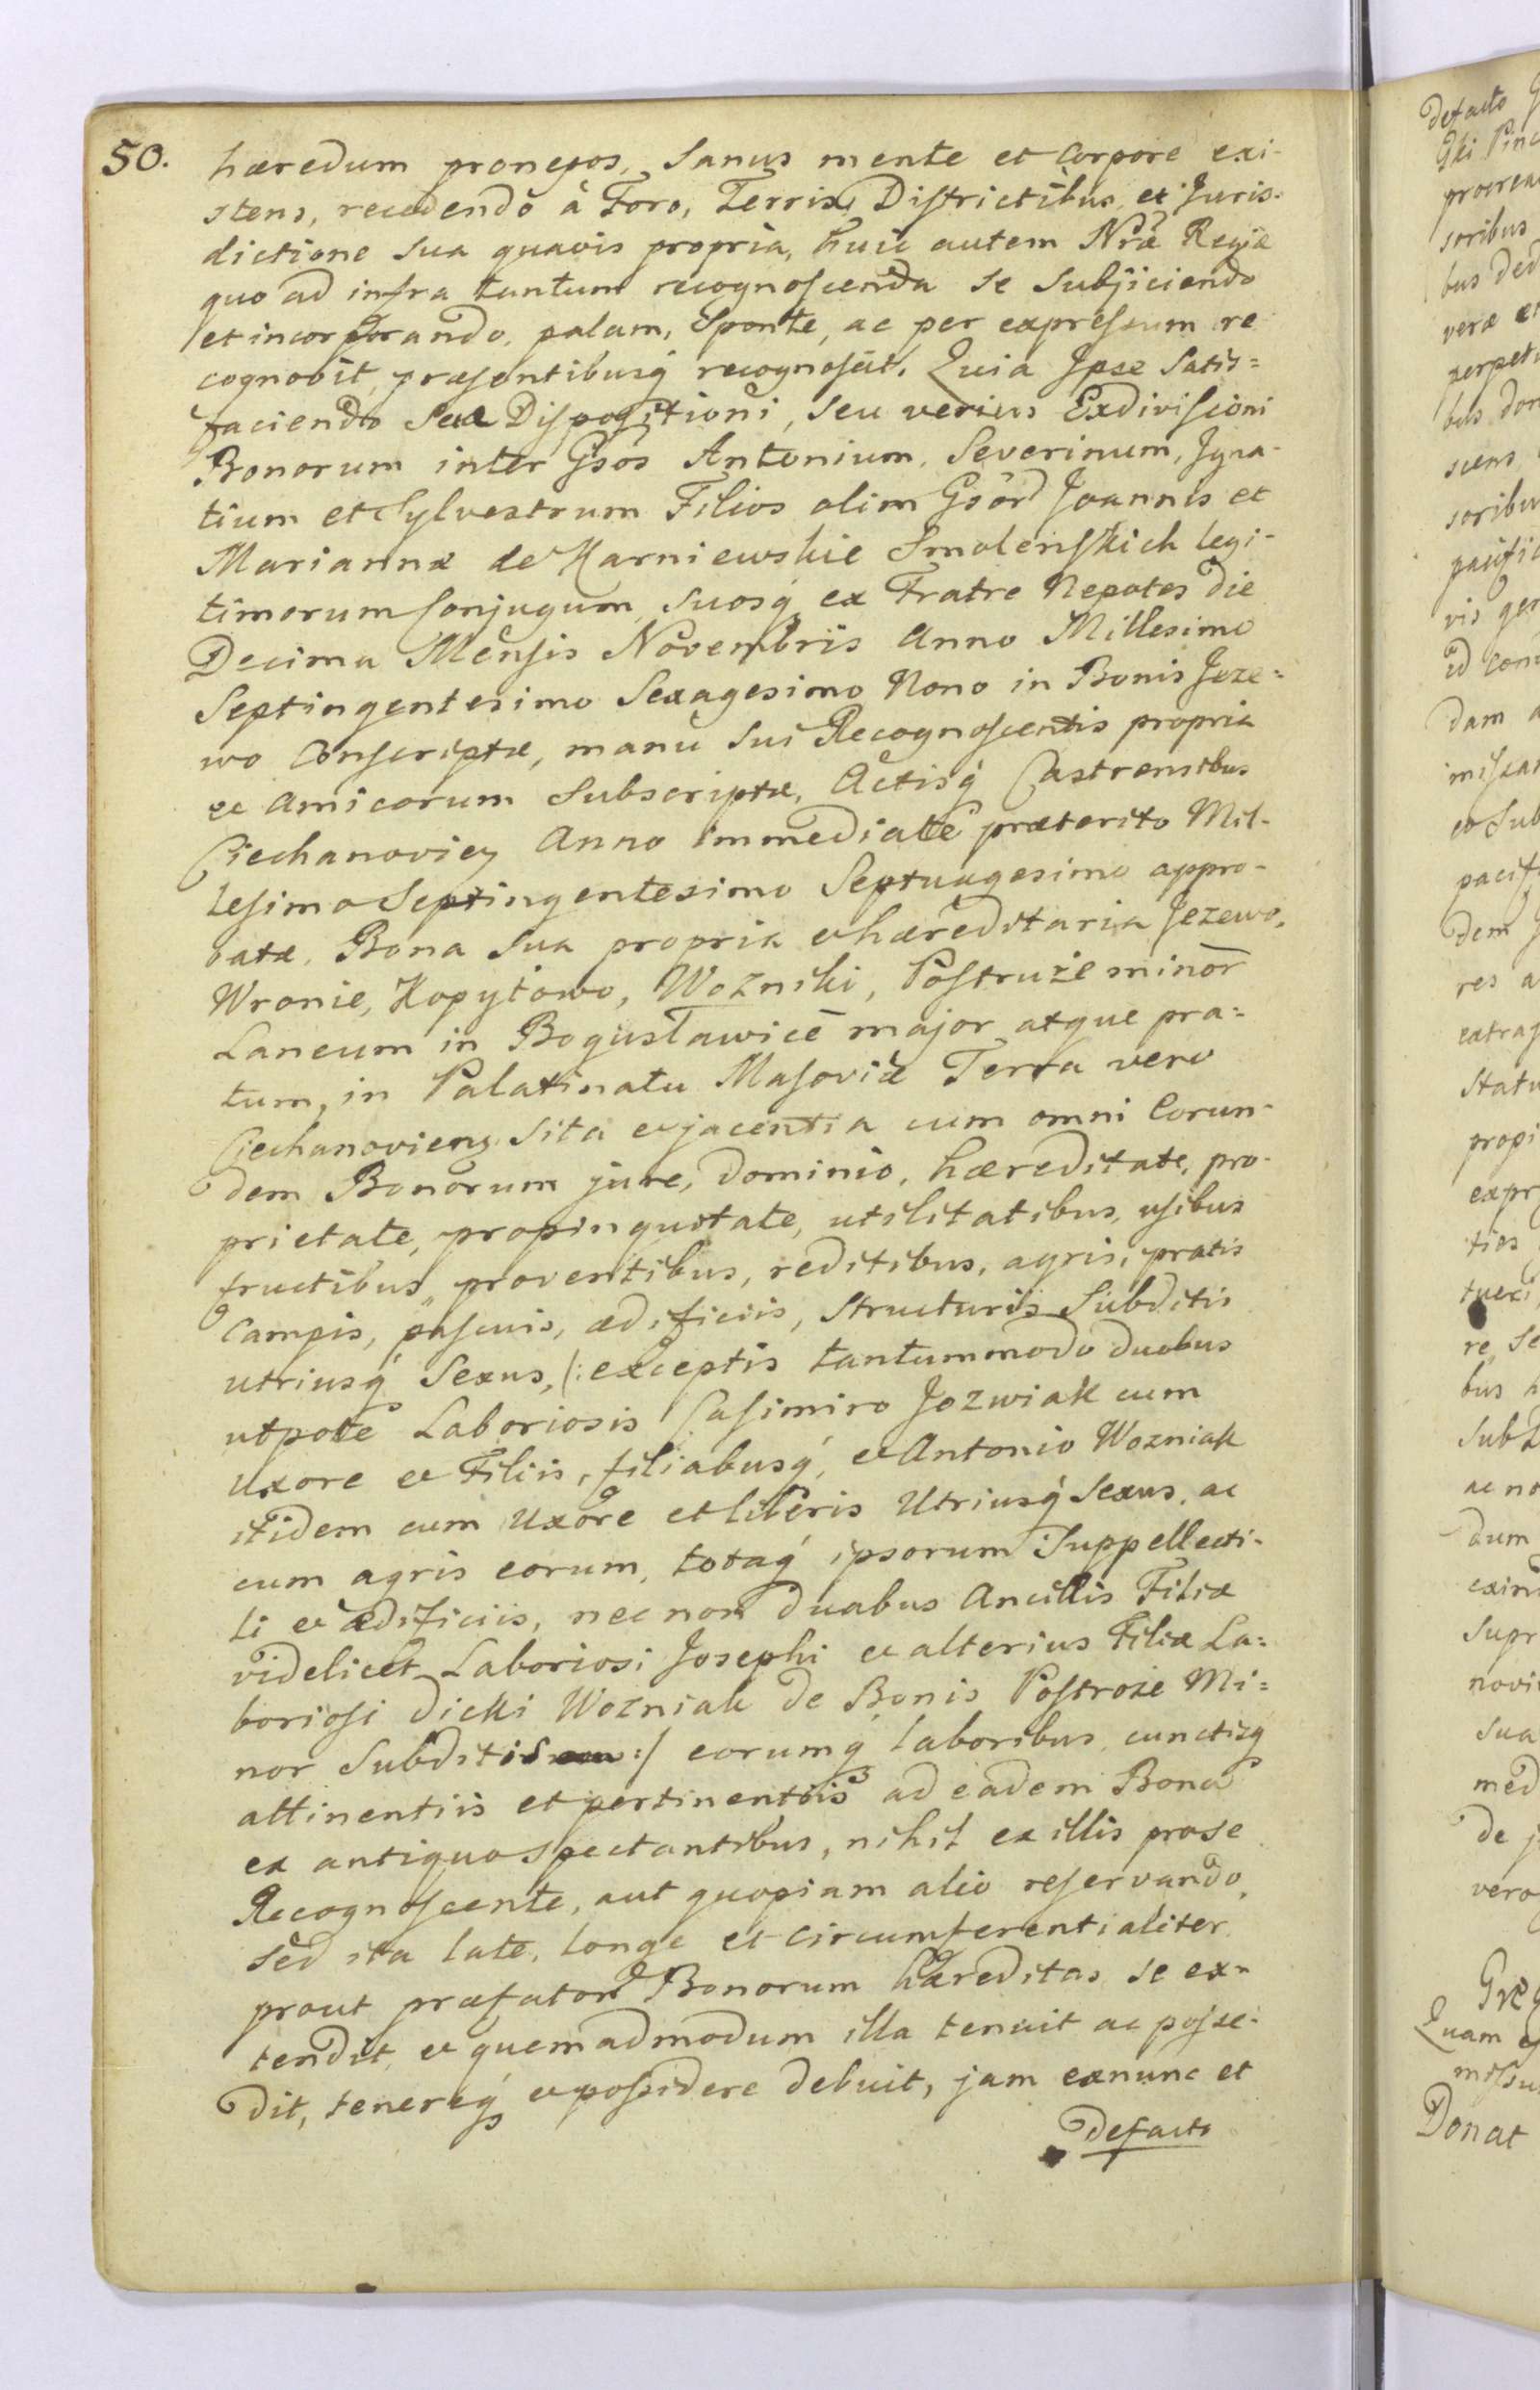 50.
hæredum pronepos, Sanus mente et Corpore exi-
stens, recedendo à Foro, Terris, Districtibus, et Juris-
dictione sua quavis propria, huic autem Nræ Regiæ
quo ad infra tantum recognoscenda se subjiciendo
et incorporando, palam, sponte, ac per expressum re
cognovit, præsentibusq́ recognoscit. Quia Ipse Satis=
faciendo suæ Dispositioni, seu verius Exdivisioni
Bonorum inter Gsos Antonium, Severinum, Igna-
tium et Sylvestrum Filios olim Gsor Joannis et
Mariannæ de Karniewskie Smolenskich legi-
timorum Conjugum, suosq́ ex Fratre Nepotes die
Decima Mensis Novembris Anno Millesimo
Septingentesimo Sexagesimo Nono in Bonis Jeze=
wo Conscriptæ, manu sui Recognoscentis propria
et Amicorum Subscriptæ, Actisq́ Castrensibus
Ciechanovien Anno immediate præterito Mil-
lesimo Septingentesimo Septuagesimo appro-
batæ, Bona sua propria et hæreditaria Jezewo,
Wronie, Kopytowo, Wozniki, Postruże minor
Laneum in Bogusławice major atque pra=
tum, in Palatinatu Masoviæ Terra vero
Ciechanoviens sita et jacentia cum omni Eorun-
dem Bonorum jure, dominio, hæreditate, pro-
prietate, propinquitate, utilitatibus, usibus
fructibus, proventibus, reditibus, agris, pratis
Campis, pascuis, ædificiis, Structuris Subditis
utriusq́ Sexus, /: exceptis tantummodo duobus
utpote Laboriosis Casimiro Jozwiak cum
Uxore et Filiis, filiabusq́, et Antonio Wozniak
itidem cum Uxore et liberis Utriusq́ Sexus, ac
cum agris eorum, totaq́ ipsorum Suppellecti-
li et ædificiis, nec non duabus Ancillis Filiæ
videlicet Laboriosi Josephi et alterius Filiæ La=
boriosi dicti Wozniak de Bonis Postroże Mi=
nor Subditis :/ eorumq́ laboribus, cunctisq́
attinentiis et pertinentiis ad eadem Bona
ex antiquo spectantibus, nihil ex illis pro se
Recognoscente, aut quopiam alio reservando,
sed ita late, longe et circumferentialiter,
prout præfator Bonorum hæreditas se ex=
tendit, et quemadmodum illa tenuit ac posse-
dit, tenereq́ et possidere debuit, jam exnunc et
defacto